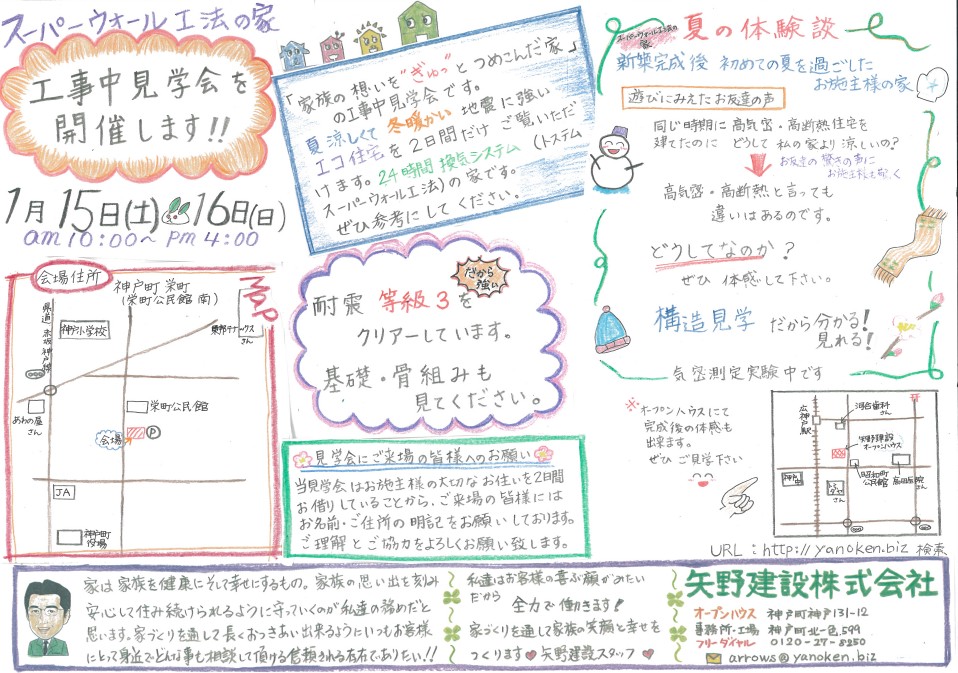 スーパーウォール工法の家
工事中見学会を
開催します!!
1月15日(土) 16日(日)
am 10:00~ pm 4:00
「家族の想いを"ぎゅっ"とつめこんだ家」
の工事中見学会です。
夏涼しくて冬暖かい地震に強い
エコ住宅を2日間だけご覧いただ
けます。24時間換気システム(トステム
スーパーウォール工法)の家です。
ぜひ参考にしてください。
スーパーウォール工法の
家
夏の体験談
新築完成後 初めての夏を過ごした
お施主様の家
遊びにみえたお友達の声
同じ時期に高気密・高断熱住宅を
建てたのに どうして私の家より涼しいの?
お友達の驚きの声に
お施主様も驚く
高気密・高断熱と言っても
違いはあるのです。
どうしてなのか?
ぜひ 体感して下さい。
構造見学 だから分かる!
見れる!
気密測定実験中です
会場住所
神戸町 栄町
(栄町公民館 南)
MAP
県道 赤坂神戸線
神戸小学校
さん
あわの屋
さん
栄町公民館
会場
P
JA
神戸町
役場
だから
強い
耐震 等級3を
クリアーしています。
基礎・骨組みも
見てください。
見学会にご来場の皆様へのお願い
当見学会はお施主様の大切なお住いを2日間
お借りしていることから、ご来場の皆様には
お名前・ご住所の明記をお願いしております。
ご理解とご協力をよろしくお願い致します。
※オープンハウスにて
完成後の体感も
出来ます。
ぜひ ご見学下さい
広神戸駅
河合歯科
さん
矢野建設
オープンハウス
昭和町
公民館
さん
URL:http://yanoken.biz 検索
家は家族を健康にそして幸せにするもの。家族の思い出を刻み
安心して住み続けられるように守っていくのが私達の務めだと
思います。家づくりを通して長くおつきあい出来るようにいつもお客様
にとって身近でどんな事も相談して頂ける信頼される会社でありたい!!
私達はお客様の喜ぶ顔がみたい
だから
全力で働きます!
家づくりを通して家族の笑顔と幸せを
つくります♥矢野建設スタッフ♥
矢野建設株式会社
オープンハウス 神戸町神戸131-12
事務所・工場 神戸町北一色599
フリーダイヤル 0120-27-8250
arrows@yanoken.biz